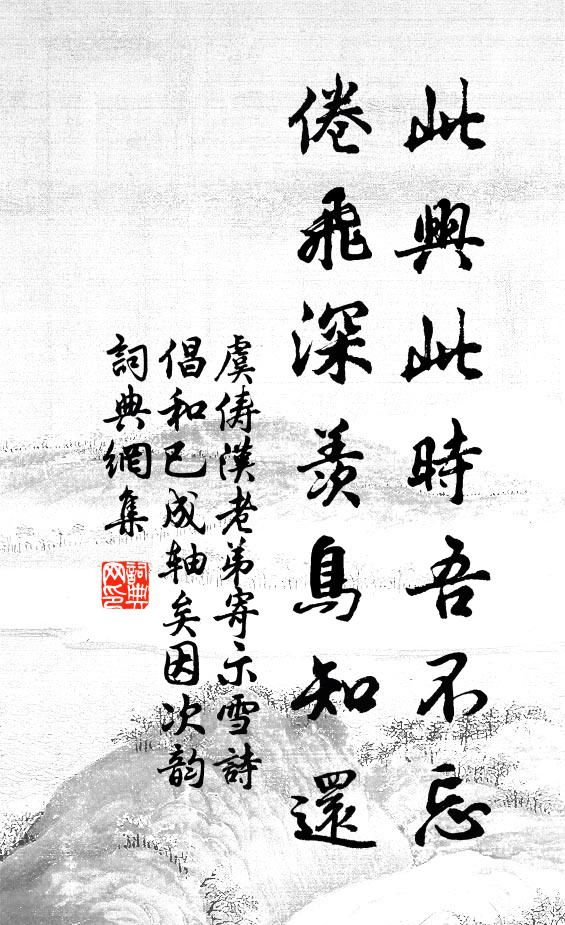 此興此時吾不忘
倦飛深羨鳥知還
虞俦漢老弟寄示雪詩
倡和已成轴矣因次韵
詞典網集
詞典
网印